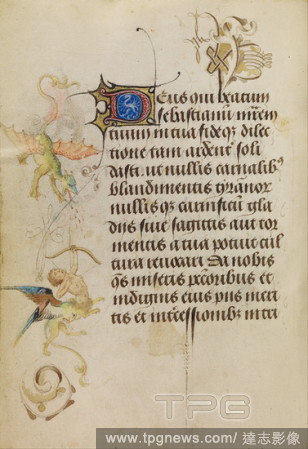 Deus qui beatum
sebastianum mrem
tuum in tua fideqꝫ dilec
tione tam ardent soli
dasti. ut nullis carnalibꝰ
blandimentis tyranor
nullisqꝫ carnificū gla
dus siue sagittis aut tor
mentis a tua potuit cul
tura reuocari Da nobis
qs miseris pctoribus et
indignis eius pus meri
tis et intcessionibꝫ in tri
TPG
www.tpgnews.com/ 達志影像